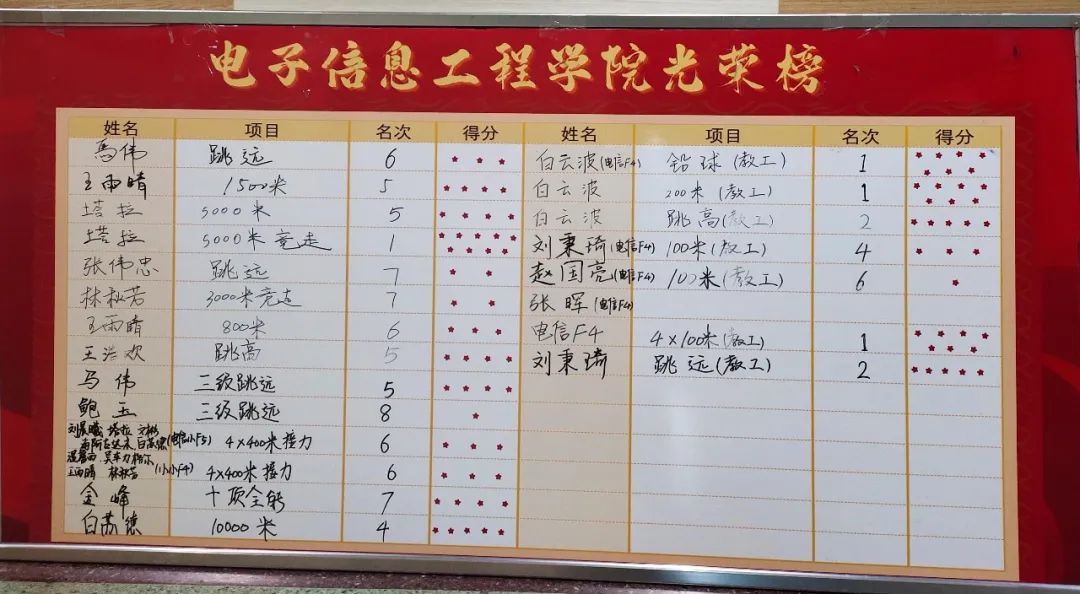 电子信息工程学院光荣榜
姓名 项目 名次 得分 姓名 项目 名次 得分
马伟 跳远 6
王雨晴 1500米 5
塔拉 5000米 5
塔拉 5000米竞走 1
张伟忠 跳远 7
林秋芳 3000米竞走 7
王雨晴 800米 6
王浩欢 跳高 5
马伟 三级跳远 5
鲍玉 三级跳远 8
塔拉
(电信小F5) 4×400米接力 6
王雨晴 林秋芳 (小小F4) 4×400米接力 6
金峰 十项全能 7
白苏德 10000米 4
白云波(电信F4) 铅球(教工) 1
白云波 200米(教工) 1
白云波 跳高(教工) 2
刘秉琦(电信F4) 100米(教工) 4
赵国亮(电信F4) 100米(教工) 6
张晖(电信F4)
电信F4 4×100米(教工) 1
刘秉琦 跳远(教工) 2